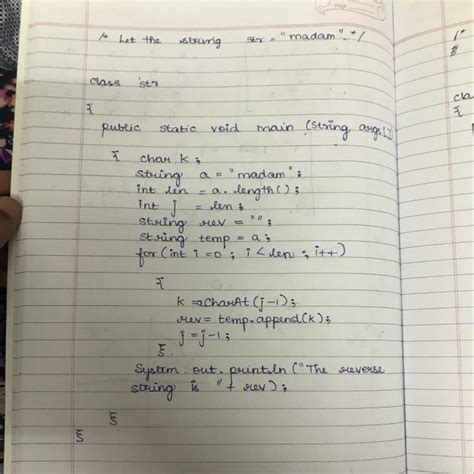 /* Let the string str = "madam". */
class str
{
public static void main (String args[])
{ char k ;
string a = "madam" ;
int len = a. length() ;
int j = len ;
string rev = "" ;
string temp = a ;
for (int i = 0 ; i < len ; i++)
{
k = acharAt (j-1) ;
rev = temp.append(k) ;
j = j-1 ;
}
System. out. println ("The reverse
string is " + rev) ;
}
}
cla
{